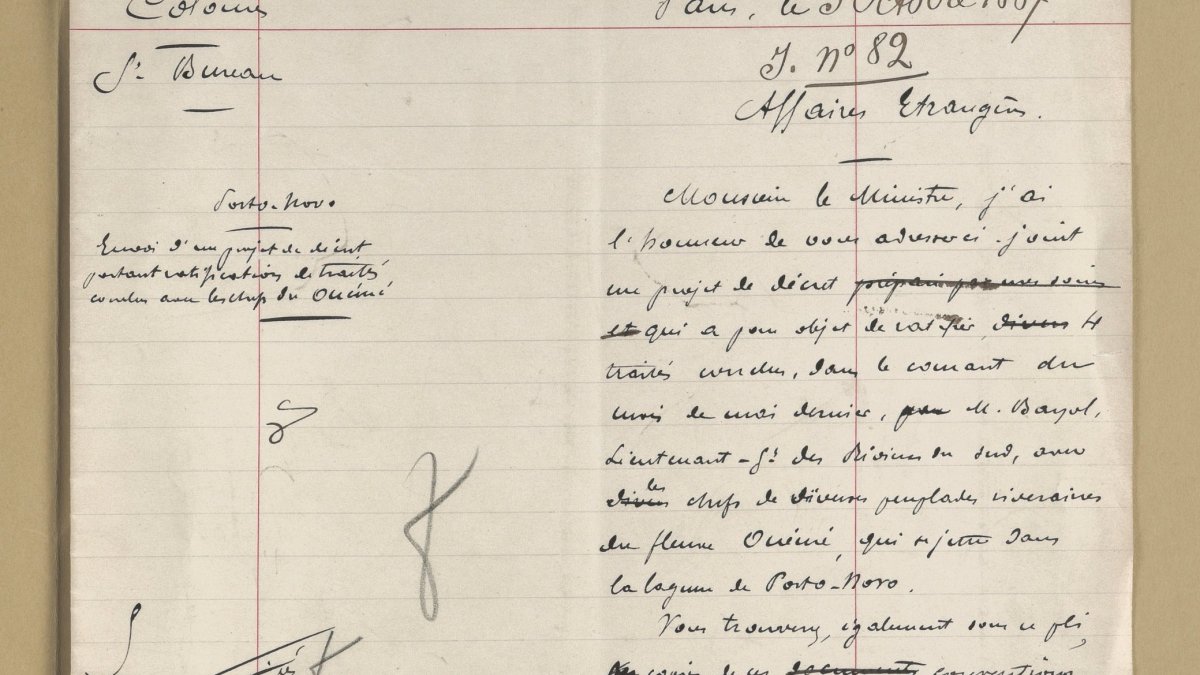 Colonies
Sn Bureau
Porto-Novo
Envoi d'un projet de décret
portant ratifications de traités
conclus avec les chefs du Ouémé
Paris, le Octobre
J. N° 82
Affaires Etrangères.
Monsieur le Ministre, j'ai
l'honneur de vous adresser ci-joint
un projet de décret préparé par mes soins
et qui a pour objet de ratifier divers 4
traités conclus, dans le courant du
mois de mai dernier, par M. Bayol,
Lieutenant-Gr des Rivières du Sud, avec
divers les chefs de diverses peuplades riveraines
du fleuve Ouémé, qui se jette dans
la lagune de Porto-Novo.
Vous trouverez, également sous ce pli,
copie de ces documents conventions